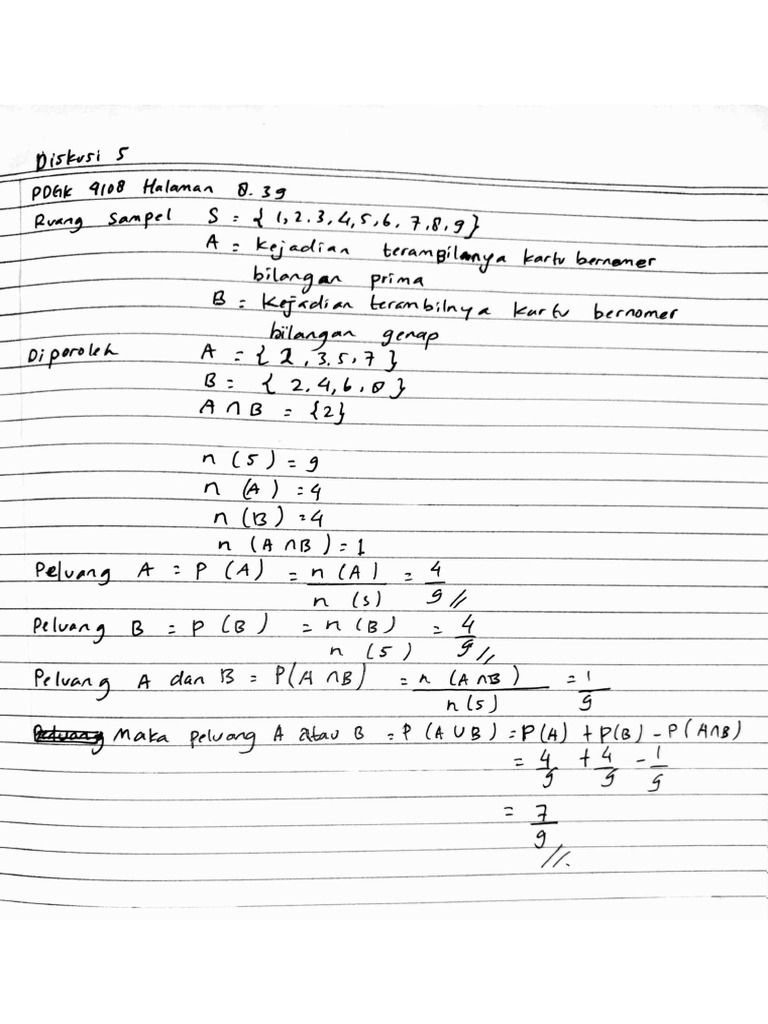 Diskusi 5
PDGK 9108 Halaman 8.39
Ruang Sampel S = { 1, 2, 3, 4, 5, 6, 7, 8, 9 }
A = Kejadian terambilanya kartu bernomer
bilangan prima
B = Kejadian terambilnya kartu bernomer
bilangan genap
Diporoleh A = { 2, 3, 5, 7 }
B = { 2, 4, 6, 8 }
A ∩ B = {2}
n (S) = 9
n (A) = 4
n (B) = 4
n (A ∩ B) = 1
Peluang A = P (A) = n (A) / n (s) = 4/9 //
Peluang B = P (B) = n (B) / n (S) = 4/9 //
Peluang A dan B = P(A ∩ B) = n (A ∩ B) / n (S) = 1/9
Maka peluang A atau B = P (A ∪ B) = P(A) + P(B) - P(A ∩ B)
= 4/9 + 4/9 - 1/9
= 7/9 //.